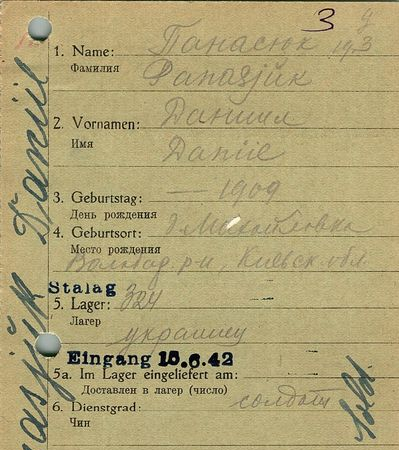 3
1. Name: Панасюк
Фамилия Panasjuk
2. Vornamen: Даниил
Имя Daniil
3. Geburtstag: — 1909
День рождения
4. Geburtsort: д Михайловка
Место рождения
р-н, Киевск. обл.
Stalag
5. Lager: 324
Лагерь
украинец
Eingang 15.6.42
5a. Im Lager eingeliefert am:
Доставлен в лагерь (число)
6. Dienstgrad: солдат
Чин
Sold.
Panasjuk Daniil